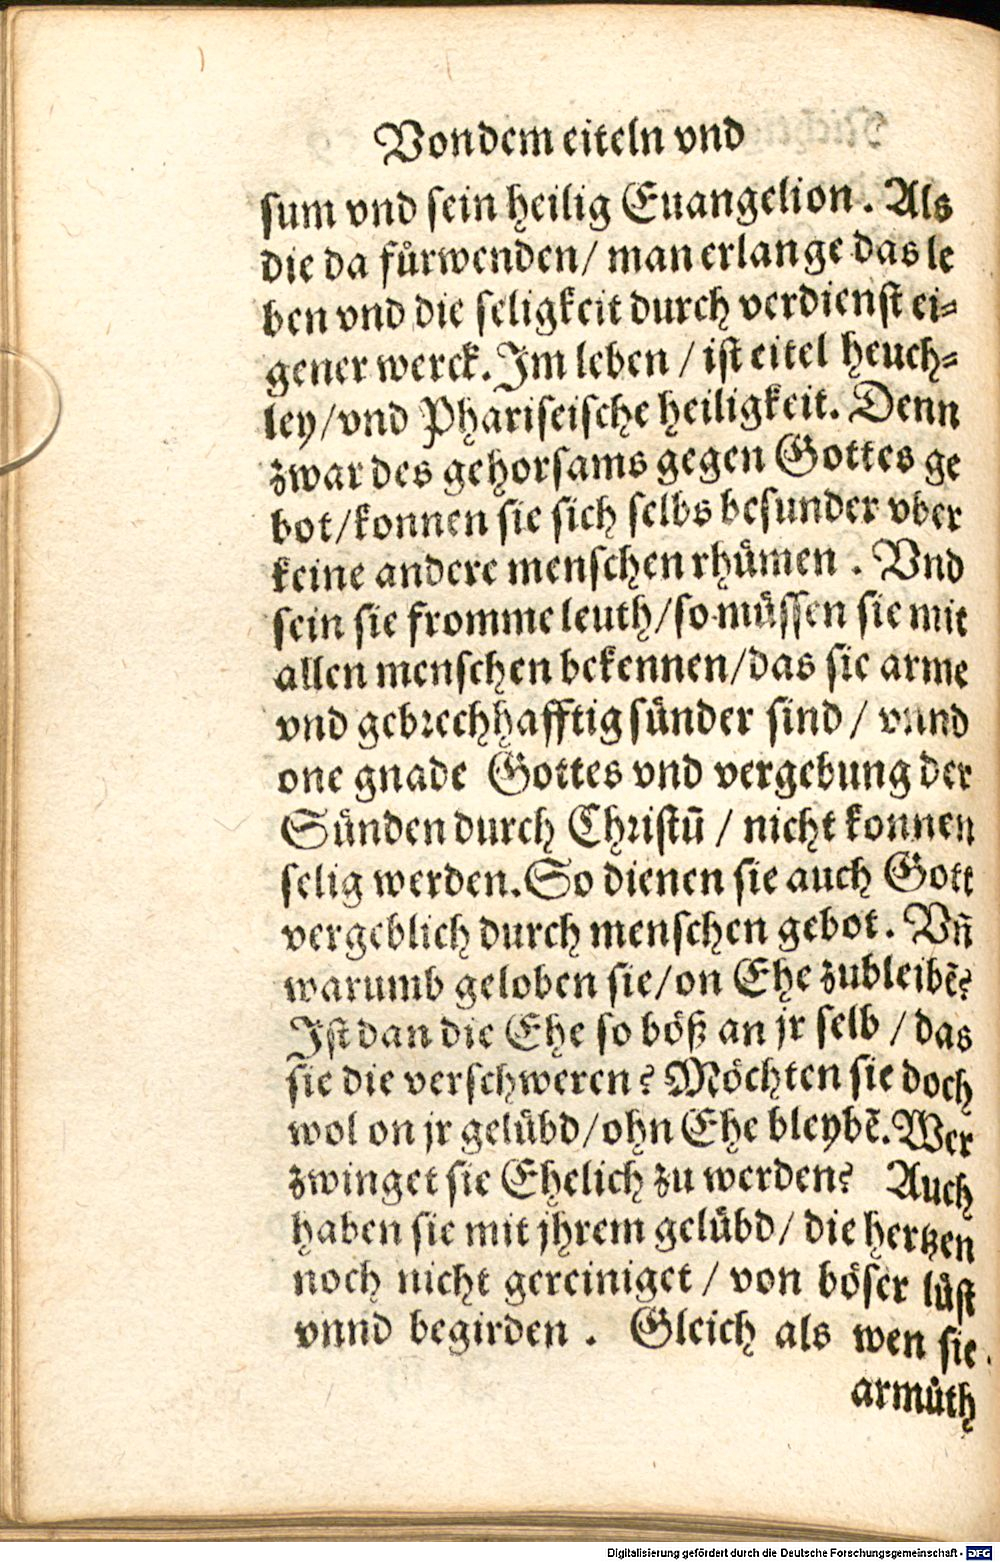 Von dem eiteln vnd
sum vnd sein heilig Euangelion. Als
die da fürwenden/ man erlange das le
ben vnd die seligkeit durch verdienst ei-
gener werck. Im leben / ist eitel heuch-
ley/vnd Phariseische heiligkeit. Denn
zwar des gehorsams gegen Gottes ge
bot/konnen sie sich selbs besunder vber
keine andere menschen rhümen . Vnd
sein sie fromme leuth/so müssen sie mit
allen menschen bekennen/das sie arme
vnd gebrechhafftig sünder sind / vnnd
one gnade Gottes vnd vergebung der
Sünden durch Christū / nicht konnen
selig werden. So dienen sie auch Gott
vergeblich durch menschen gebot. Vñ
warumb geloben sie/on Ehe zubleibē?
Ist dan die Ehe so böß an jr selb / das
sie die verschweren? Möchten sie doch
wol on jr gelübd/ohn Ehe bleybē. Wer
zwinget sie Ehelich zu werden? Auch
haben sie mit jhrem gelübd/ die hertzen
noch nicht gereiniget / von böser lüst
vnnd begirden . Gleich als wen sie
armüth
Digitalisierung gefördert durch die Deutsche Forschungsgemeinschaft - DFG